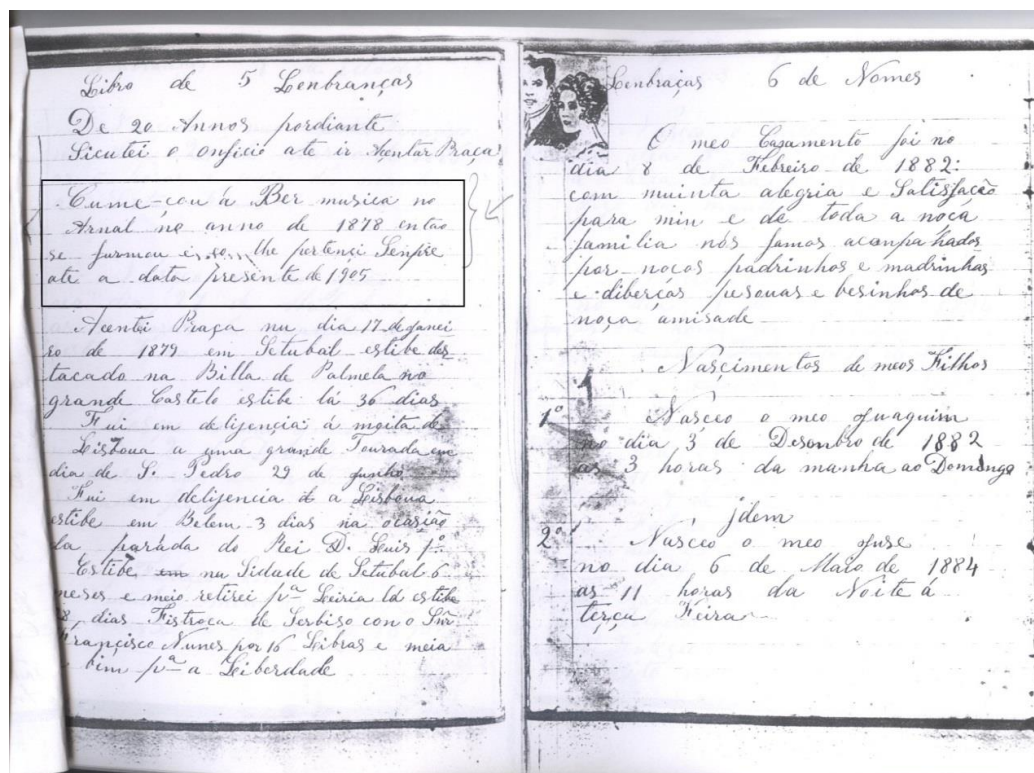 Libro de 5 Lenbranças
De 20 Annos pordiante
Sicutei o onficio ate ir Acentar Praça
Cume-çou á Ber musica no
Arnal no anno de 1878 entao
se furmou e so lhe pertenci Senpre
ate a data presente de 1905
Acentei Praça nu dia 17 de Janei
ro de 1879 em Setubal estibe des
tacado na Billa de Palmela no
grande Castelo estibe lá 36 dias
Fui em delijencia á moita de
Lisboua a uma grande Tourada em
dia de S. Pedro 29 de junho
Fui em delijencia a Lisboua
estibe em Belem 3 dias na ocasião
da parada do Rei D. Luis 1º
Estibe em na Sidade de Setubal 6
meses e meio retirei pª Leiria lá estibe
8, dias Fistroca de Serbiso con o Snr
Francisco Nunes por 16 Libras e meia
bim pª a Leiberdade
Lenbraças 6 de Nomes
O meo Casamento foi no
dia 8 de Febreiro de 1882:
com muinta alegria e Satisfação
para min e de toda a noça
familia nós famos acanpahados
por noços padrinhos e madrinhas
e diberças pesouas e besinhos de
noça amisade
Nasçimentos de meos Filhos
1º Nasceo o meo Juaquim
no dia 3 de Desenbro de 1882
as 3 horas da manha ao Domingo
jdem
2º Nasceo o meo Juse
no dia 6 de Maio de 1884
as 11 horas da Noite á
terça Feira